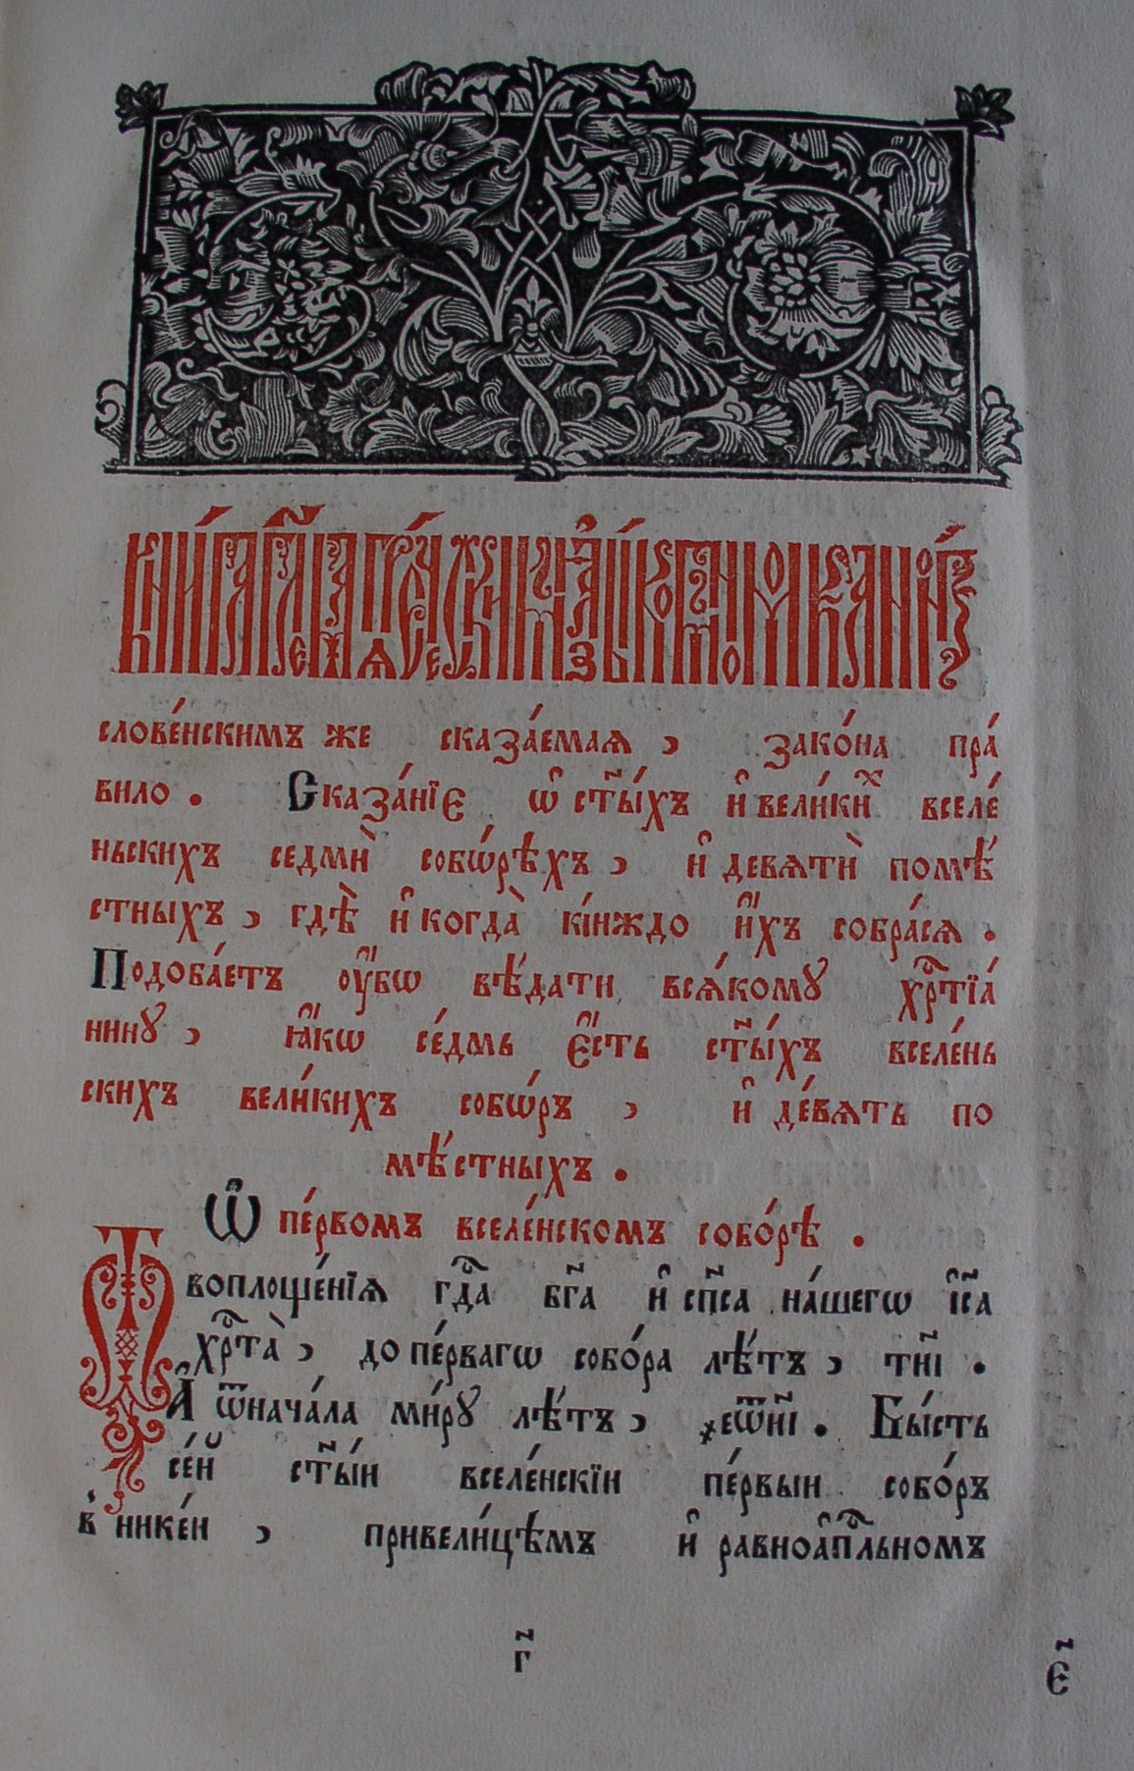 КНИ́ГА ГЛ҃ЕМАѦ ГРЕ́ЧЕСКИМЪ ꙖЗЫ́КОМЪ НОМОКАНО́НЪ
слове́нскимъ же сказа́емаѧ, зако́на пра́
вило. Сказа́нїе ѡ҆ ст҃ы́хъ и҆ вели́кихⷯ вселе́
ньскихъ седмѝ собѡ́рѣхъ, и҆ девѧтѝ помѣ́
стныхъ, гдѣ̀ и҆ когда̀ кі́иждо и҆́хъ собра́сѧ.
Подоба́етъ ᲂу҆́бѡ вѣ́дати всѧ́кому хрⷭ҇тїа́
нинꙋ, ꙗ҆́кѡ се́дмь є҆́сть ст҃ы́хъ вселе́нь
скихъ вели́кихъ собѡ́ръ, и҆ де́вѧть по
мѣ́стныхъ.
Ѡ҆ пе́рвомъ вселе́нскомъ собо́рѣ.
Ѿ воплоще́нїѧ гдⷭ҇а бг҃а и҆ сп҃са на́шегѡ і҆с҃а
хрⷭ҇та̀, до пе́рвагѡ собо́ра лѣ́тъ, ти҃і.
А҆ ѿнача́ла ми́рꙋ лѣ́тъ, ҂еѿн҃і. Бы́сть
се́й ст҃ы́и вселе́нскїи пе́рвыи собо́ръ
в҆ нике́и, привели́цѣмъ и҆ равноа҆пⷭ҇льномъ
г҃
є҃